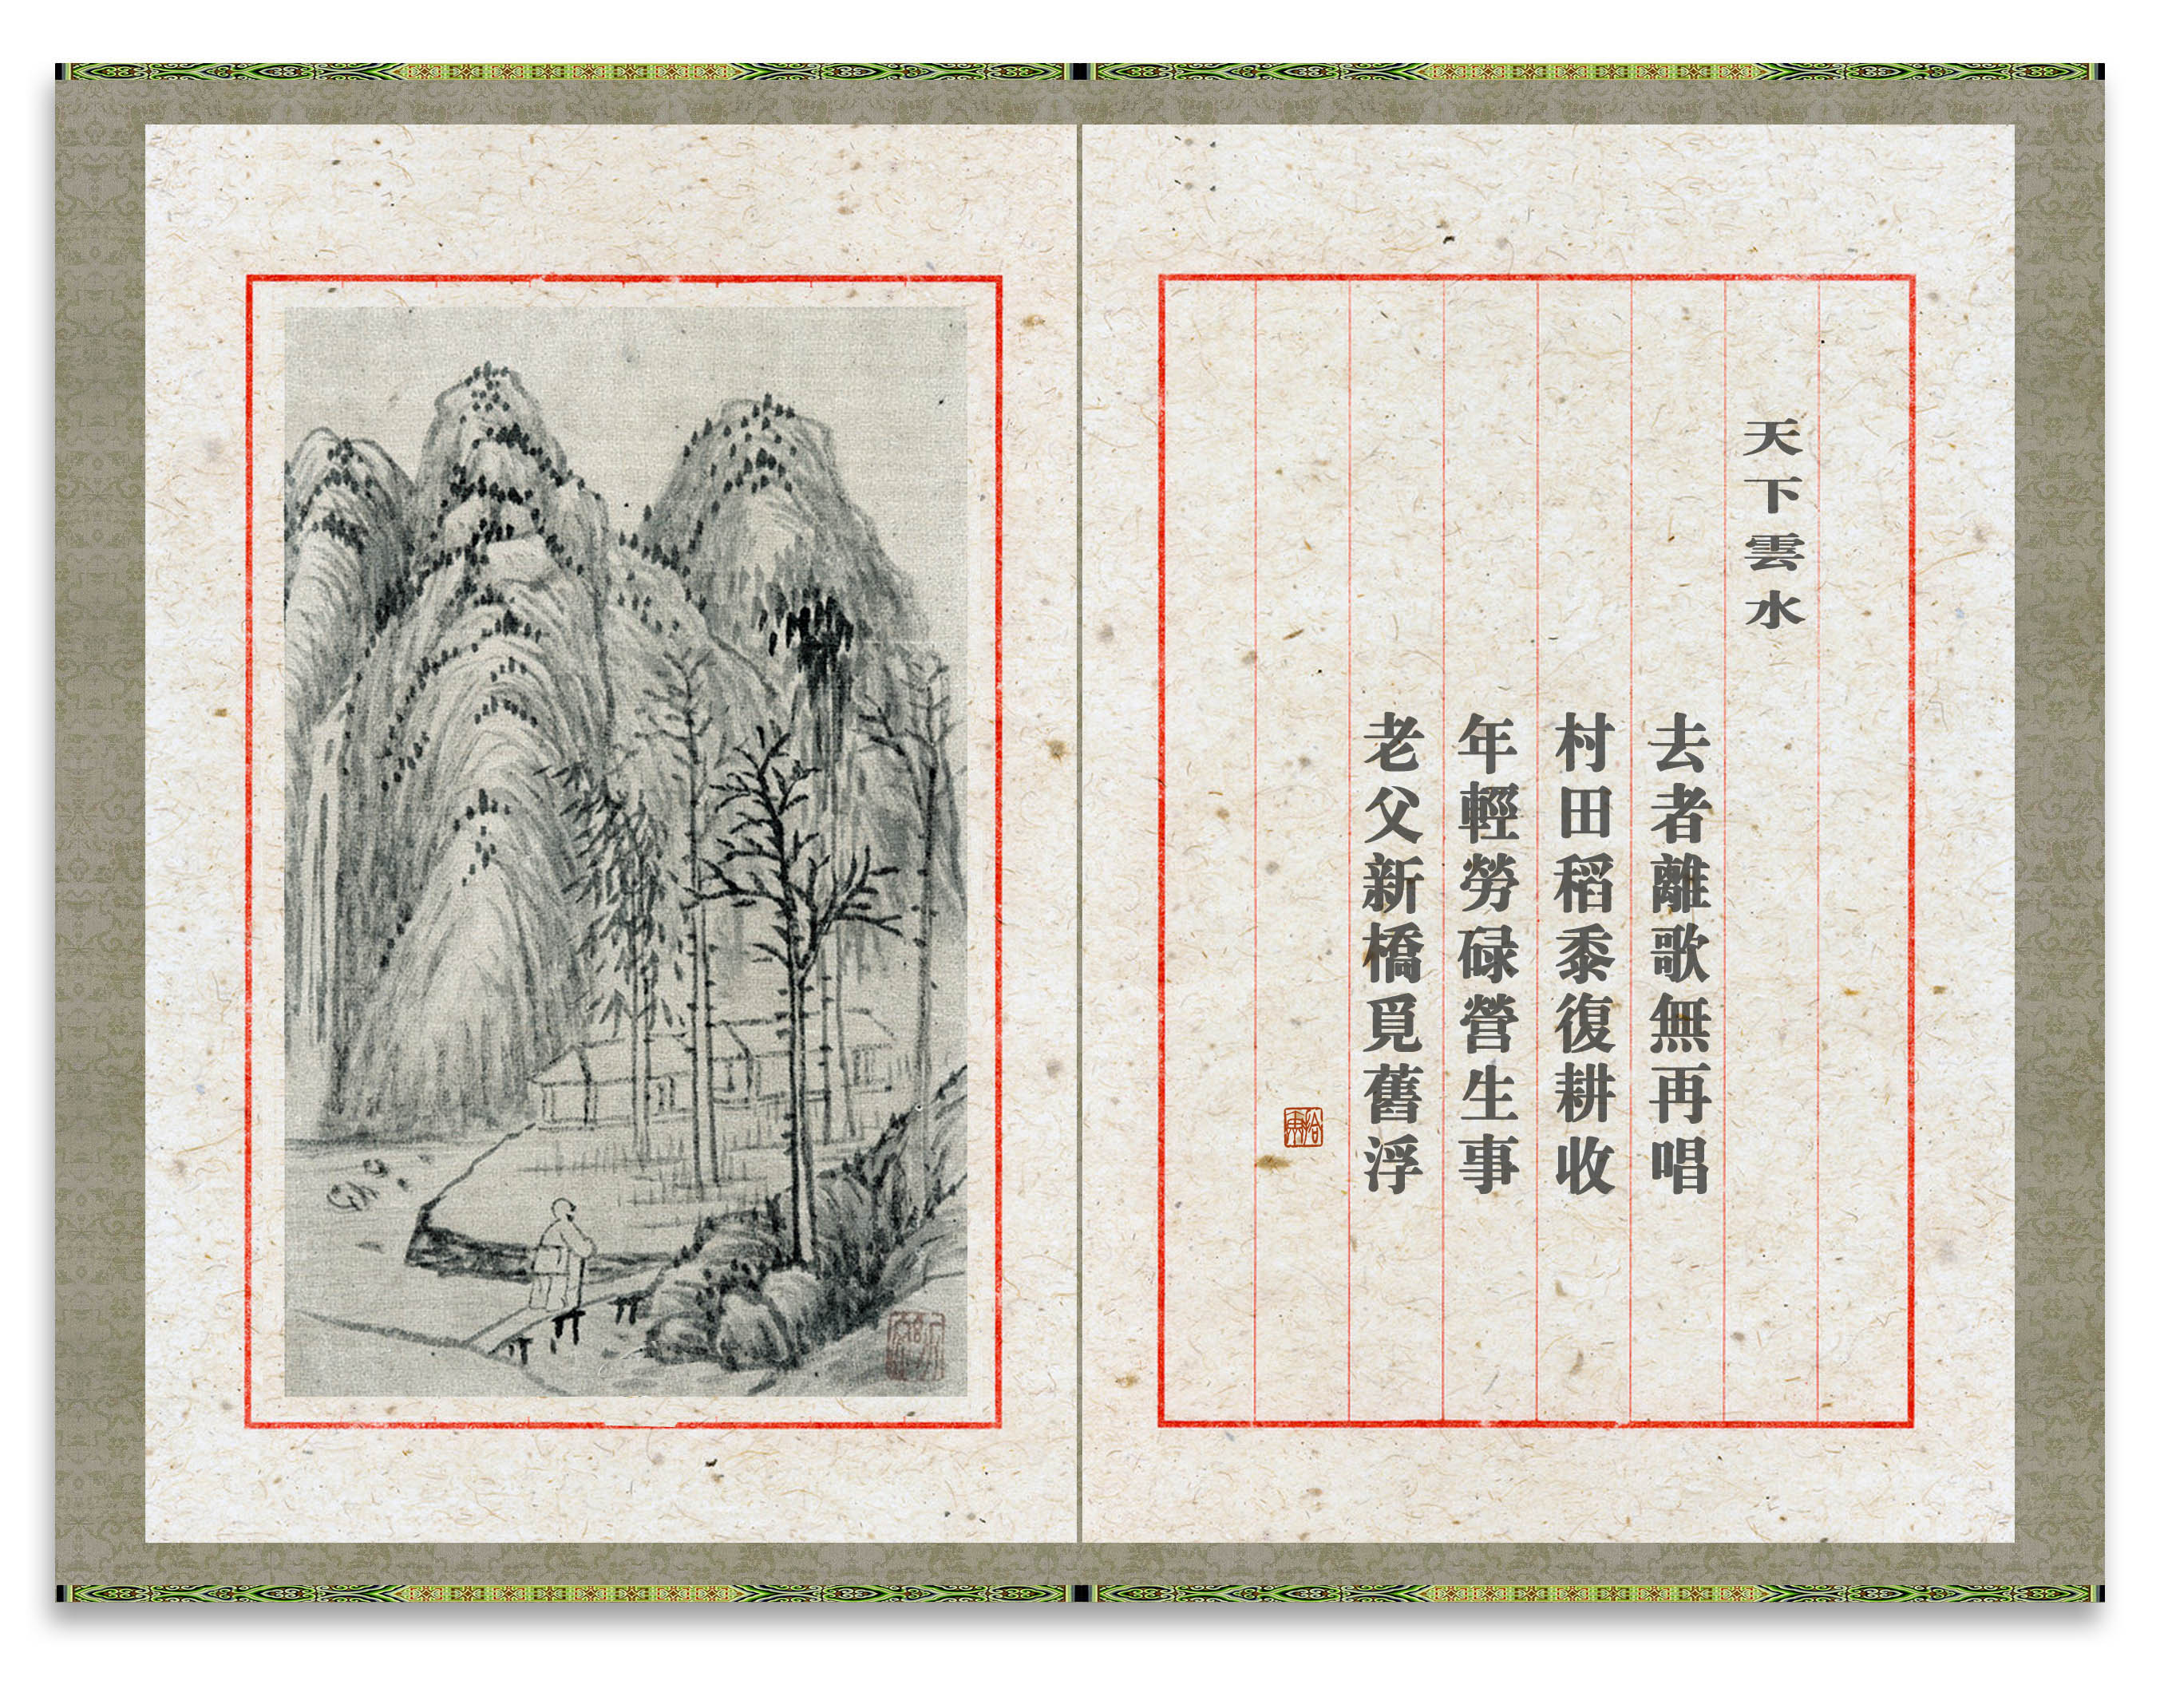 天下雲水
去者離歌無再唱
村田稻黍復耕收
年輕勞碌營生事
老父新橋覓舊浮